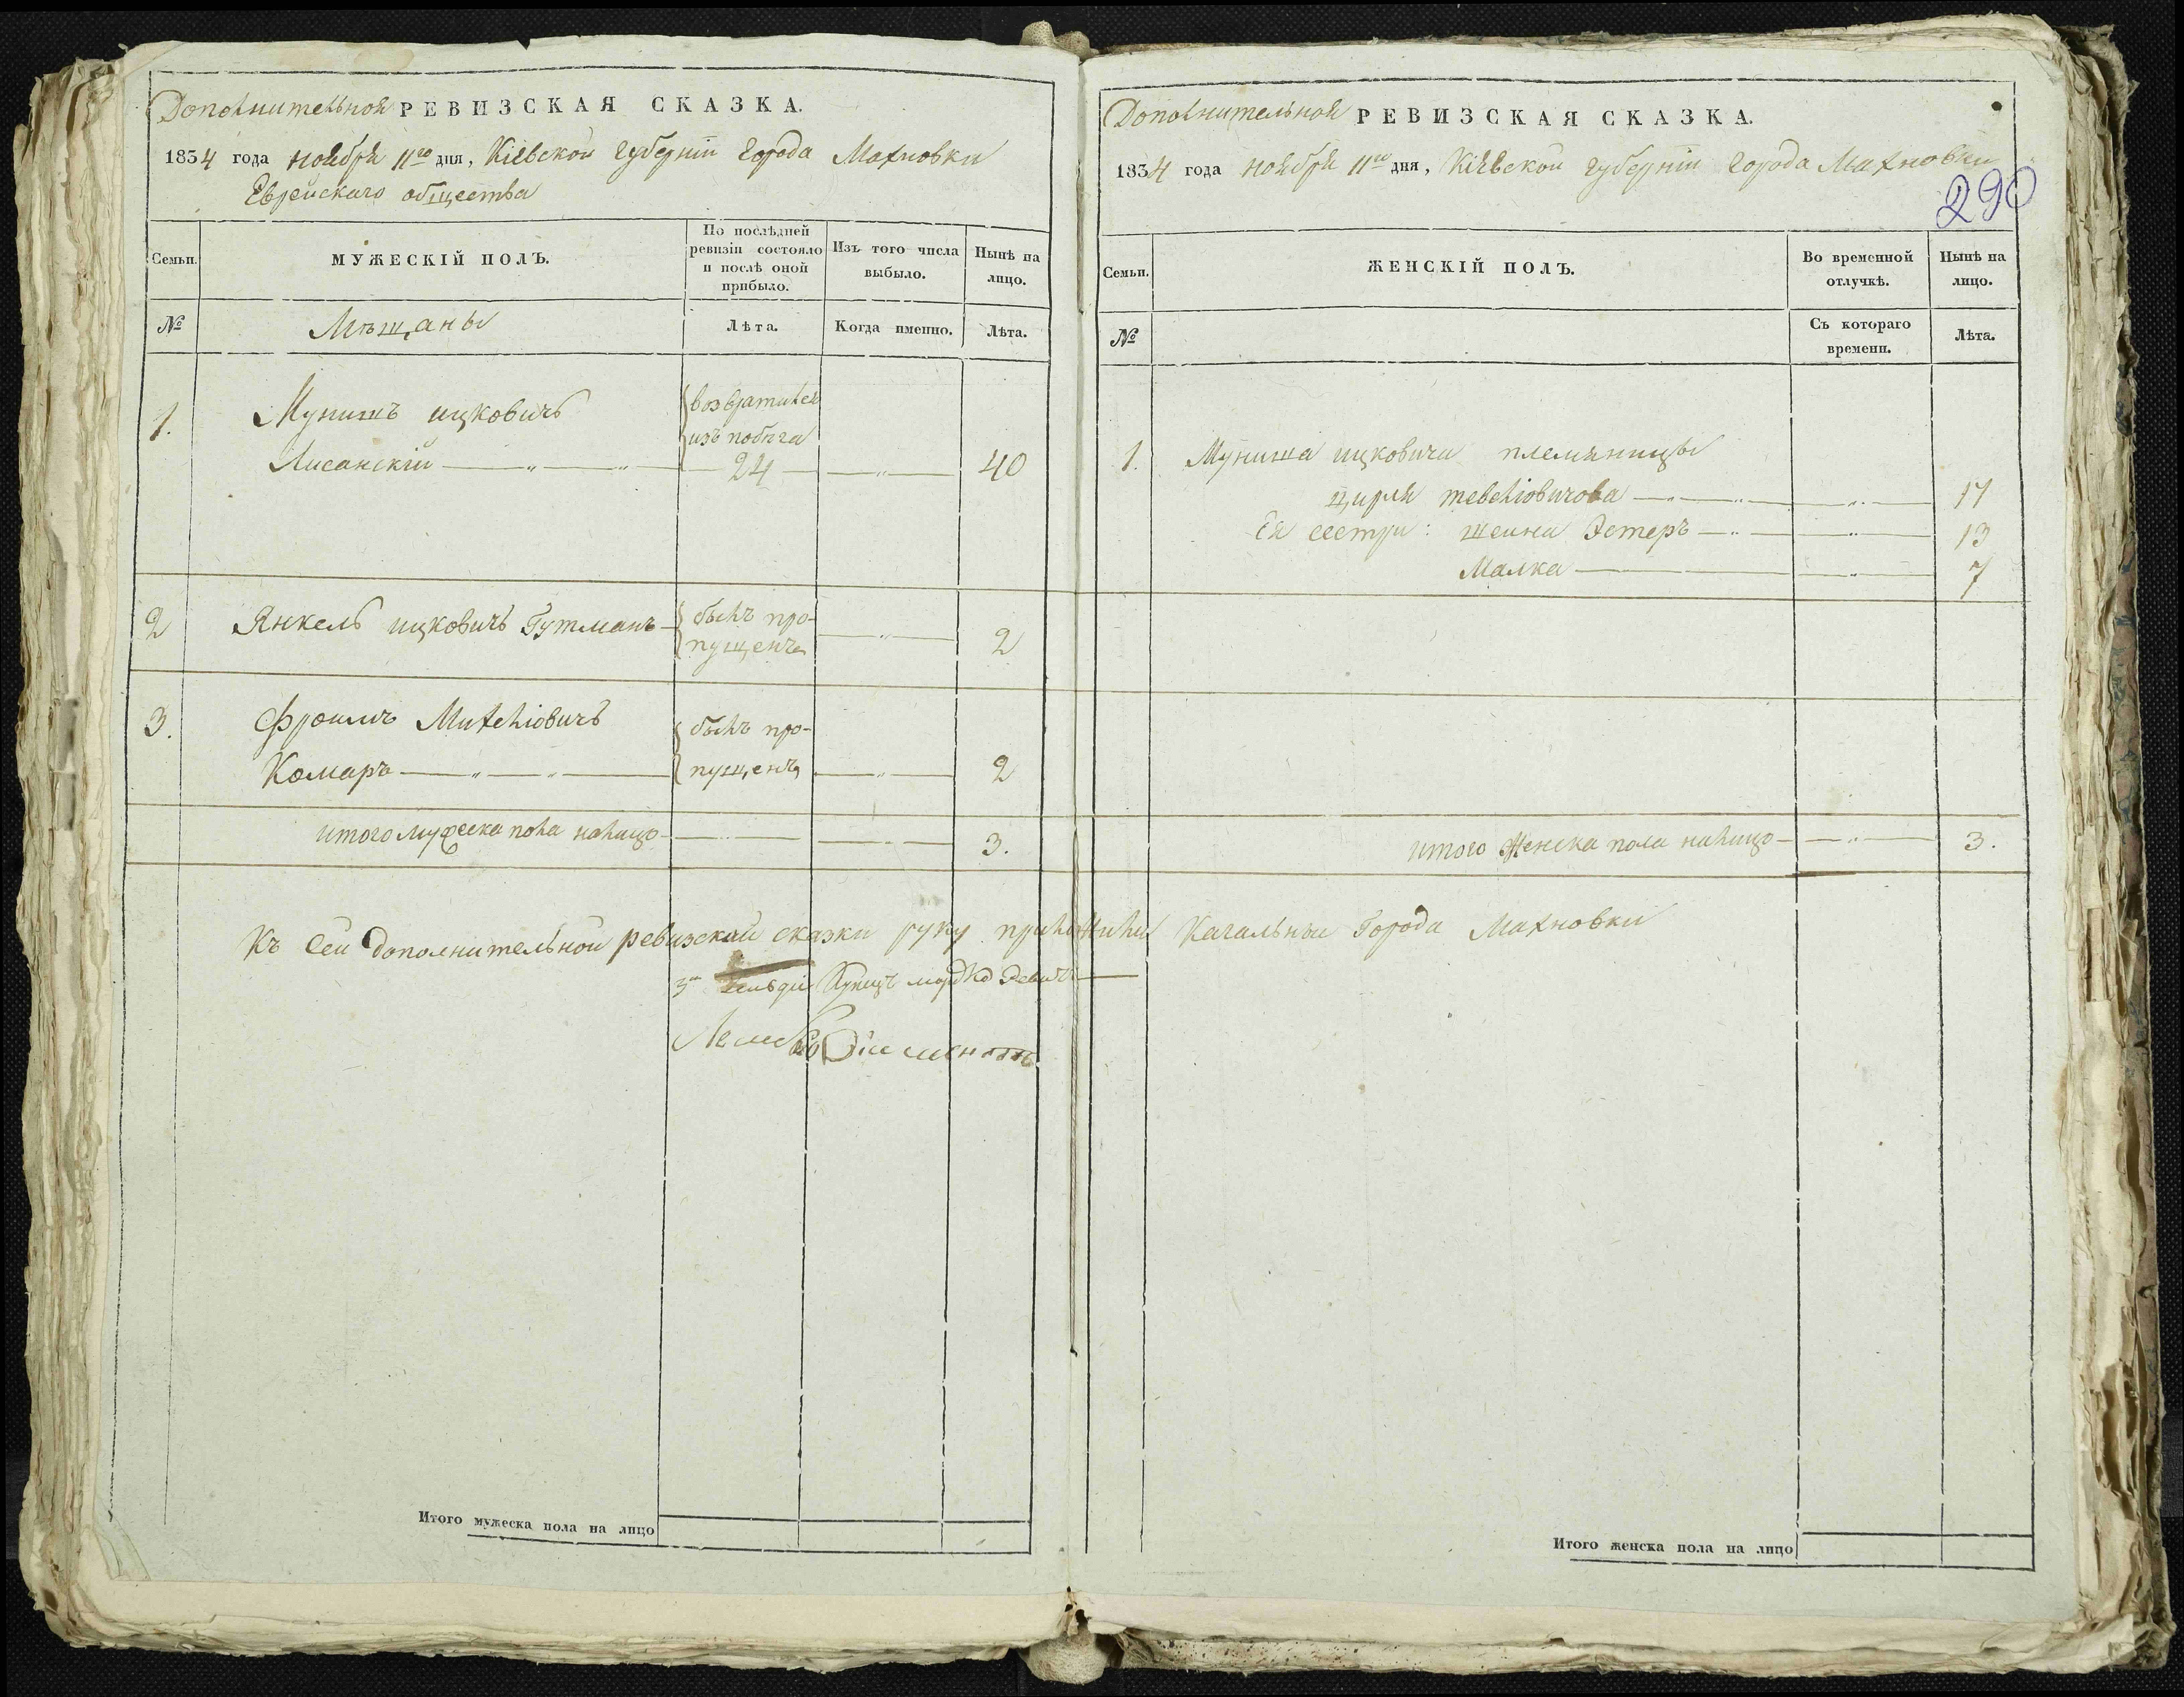 Дополнительной РЕВИЗСКАЯ СКАЗКА.
1834 года ноября 11го дня, Кіевской губерніи города Махновки
Еврейскаго общества
Семьи.
МУЖЕСКІЙ ПОЛЪ.
По послѣдней
ревизіи состояло
и послѣ оной
прибыло.
Изъ того числа
выбыло.
Нынѣ на
лицо.
№
Мѣщаны
Лѣта.
Когда именно.
Лѣта.
1. Мунишъ ицковичъ возвратился
изъ побѣга
Лисанскій 24 40
2 Янкель ицковичъ Гутманъ былъ про-
пущенъ 2
3. Фроимъ Михеліовичъ былъ про-
Комаръ пущенъ 2
итого мужеска пола налицо 3.
Къ сей дополнительной ревизской сказки руку приложили Кагальные Города Махновки
3й Купецъ мордко
Итого мужеска пола на лицо
Дополнительной РЕВИЗСКАЯ СКАЗКА.
1834 года ноября 11го дня, Кіевской губерніи города Махновки
290
Семьи.
ЖЕНСКІЙ ПОЛЪ.
Во временной
отлучкѣ.
Нынѣ на
лицо.
№
Съ котораго
времени.
Лѣта.
1. Муниша ицковича племянницы
Цирля тевеліовичова 17
Ея сестри: шеина Эстеръ 13
Малка 7
итого Женска пола налицо 3.
Итого женска пола на лицо